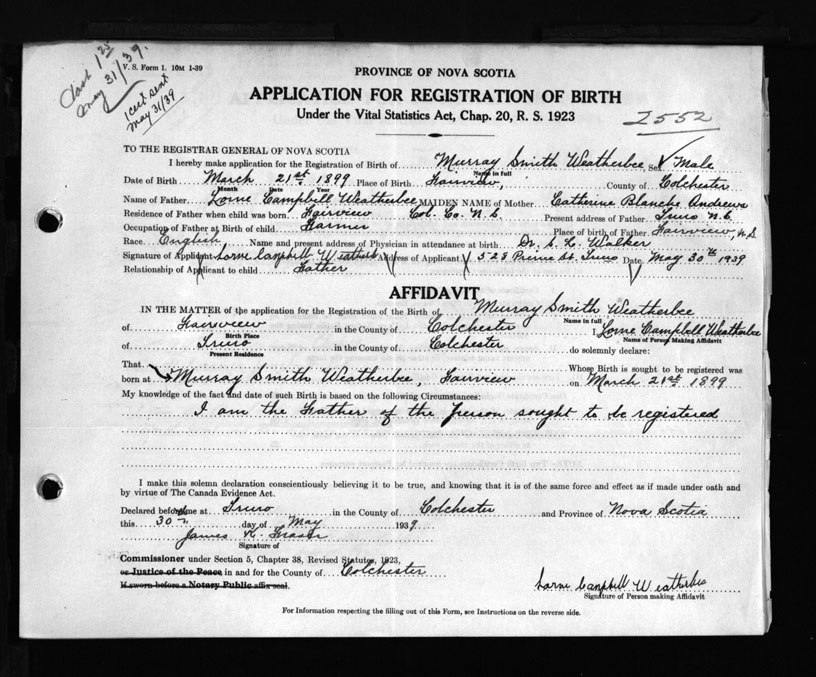 Cash 1 25
May 31/39.
1 cert sent
May 31/39
V. S. Form 1. 10M 1-39
PROVINCE OF NOVA SCOTIA
APPLICATION FOR REGISTRATION OF BIRTH
Under the Vital Statistics Act, Chap. 20, R. S. 1923
2552
TO THE REGISTRAR GENERAL OF NOVA SCOTIA
I hereby make application for the Registration of Birth of Murray Smith Weatherbee Sex Male
Name in full
Date of Birth March 21st 1899 Place of Birth Fairview, County of Colchester
Month Date Year
Name of Father Lorne Campbell Weatherbee MAIDEN NAME of Mother Catherine Blanche Andrews
Residence of Father when child was born Fairview Col. Co. N.S. Present address of Father Truro N.S.
Occupation of Father at Birth of child Farmer Place of birth of Father Fairview, N.S
Race English, Name and present address of Physician in attendance at birth Dr. S. L. Walker
Signature of Applicant Lorne Campbell Weatherbee Address of Applicant 528 Prince St. Truro Date May 30th 1939
Relationship of Applicant to child Father
AFFIDAVIT
IN THE MATTER of the application for the Registration of the Birth of Murray Smith Weatherbee
Name in full
of Fairview in the County of Colchester I Lorne Campbell Weatherbee
Birth Place Name of Person Making Affidavit
of Truro in the County of Colchester do solemnly declare:
Present Residence
That Whose Birth is sought to be registered was
born at Murray Smith Weatherbee, Fairview on March 21st 1899
My knowledge of the fact and date of such Birth is based on the following Circumstances:
I am the Father of the Person sought to be registered
I make this solemn declaration conscientiously believing it to be true, and knowing that it is of the same force and effect as if made under oath and
by virtue of The Canada Evidence Act.
Declared before me at Truro in the County of Colchester and Province of Nova Scotia
this 30th day of May 1939
James R. Fraser
Signature of
Commissioner under Section 5, Chapter 38, Revised Statutes, 1923,
or Justice of the Peace in and for the County of Colchester
If sworn before a Notary Public affix seal.
Lorne Campbell Weatherbee
Signature of Person making Affidavit
For Information respecting the filling out of this Form, see Instructions on the reverse side.